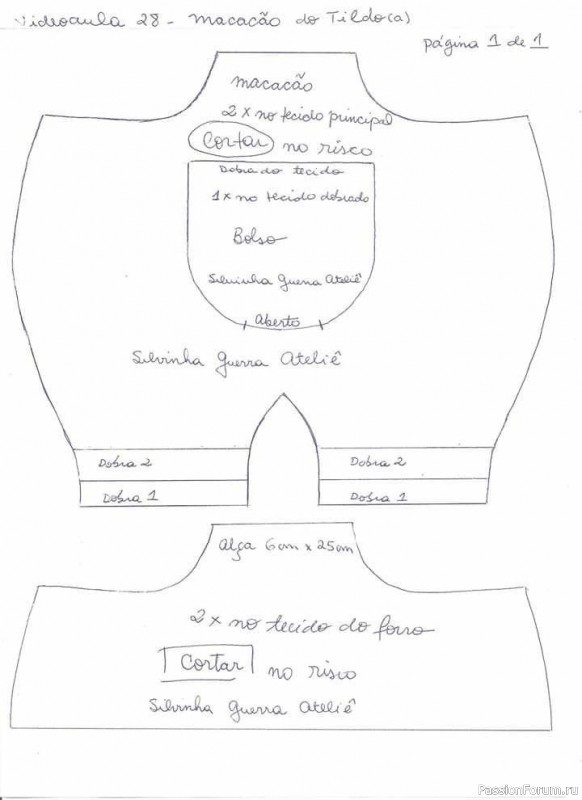 Videoaula 28 - Macacão do Tildo(a)
página 1 de 1
macacão
2 x no tecido principal
Cortar no risco
Dobra do tecido
1x no tecido dobrado
Bolso
Silvinha Guerra Ateliê
Aberto
Silvinha Guerra Ateliê
Dobra 2
Dobra 2
Dobra 1
Dobra 1
Alça 6cm x 25cm
2 x no tecido do forro
Cortar no risco
Silvinha Guerra Ateliê
PassionForum.ru